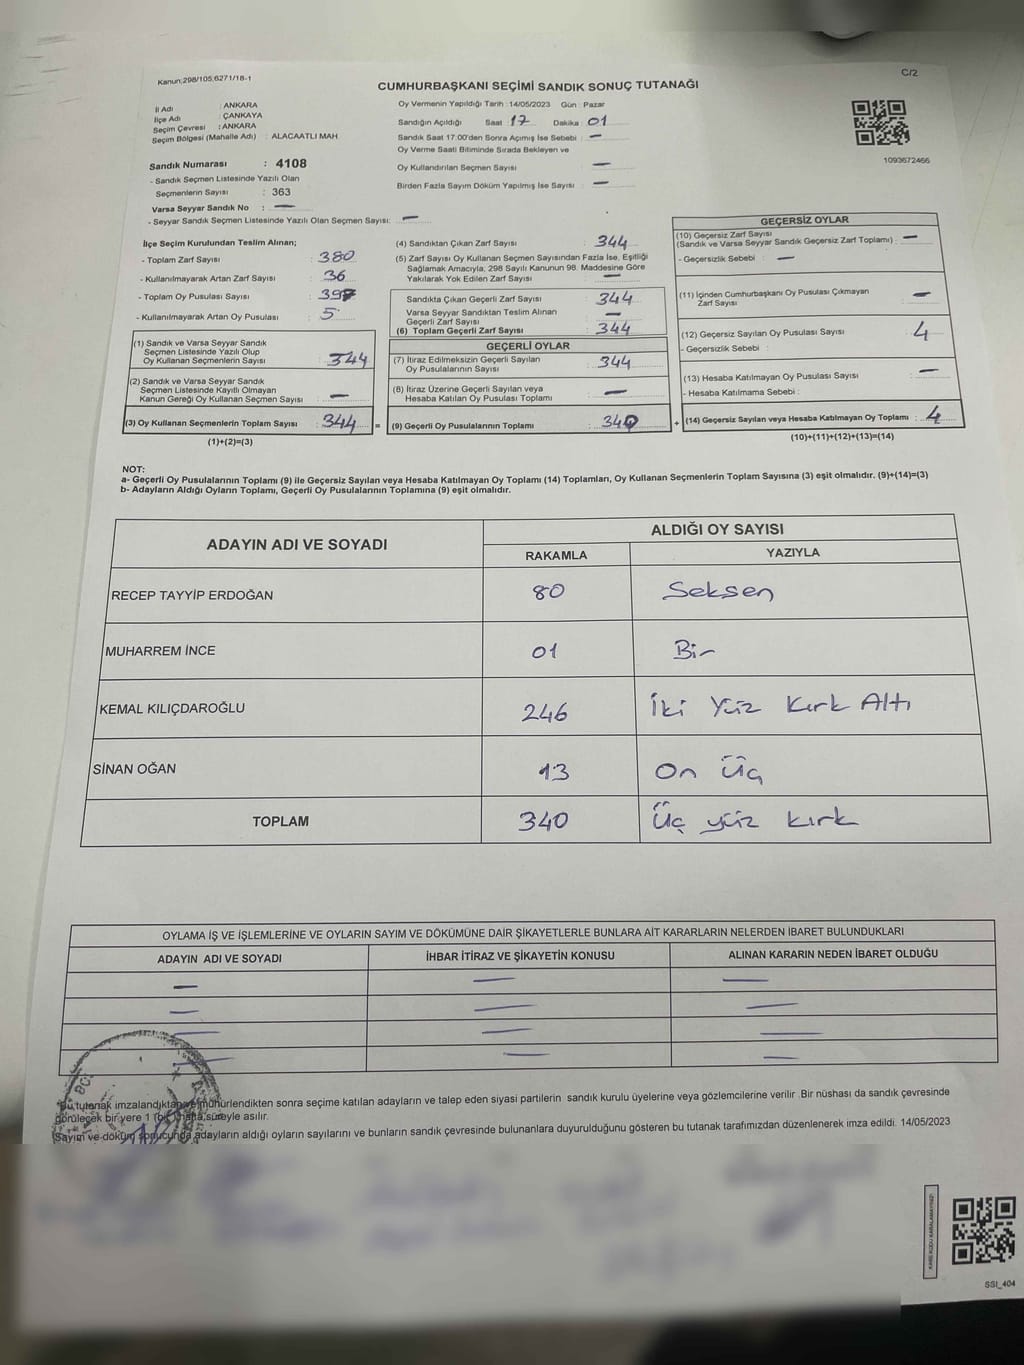 Kanun;298/105,6271/18-1
C/2
CUMHURBAŞKANI SEÇİMİ SANDIK SONUÇ TUTANAĞI
İl Adı : ANKARA
İlçe Adı : ÇANKAYA
Seçim Çevresi : ANKARA
Seçim Bölgesi (Mahalle Adı) : ALACAATLI MAH
Sandık Numarası : 4108
- Sandık Seçmen Listesinde Yazılı Olan
Seçmenlerin Sayısı : 363
Varsa Seyyar Sandık No : —
- Seyyar Sandık Seçmen Listesinde Yazılı Olan Seçmen Sayısı: —
Oy Vermenin Yapıldığı Tarih : 14/05/2023 Gün : Pazar
Sandığın Açıldığı Saat 17 Dakika 01
Sandık Saat 17:00'den Sonra Açımış İse Sebebi : —
Oy Verme Saati Bitiminde Sırada Bekleyen ve
Oy Kullandırılan Seçmen Sayısı —
Birden Fazla Sayım Döküm Yapılmış İse Sayısı : —
1093672466
İlçe Seçim Kurulundan Teslim Alınan;
- Toplam Zarf Sayısı : 380
- Kullanılmayarak Artan Zarf Sayısı : 36
- Toplam Oy Pusulası Sayısı :
- Kullanılmayarak Artan Oy Pusulası : 5
(1) Sandık ve Varsa Seyyar Sandık
Seçmen Listesinde Yazılı Olup
Oy Kullanan Seçmenlerin Sayısı : 344
(2) Sandık ve Varsa Seyyar Sandık
Seçmen Listesinde Kayıtlı Olmayan
Kanun Gereği Oy Kullanan Seçmen Sayısı : —
(3) Oy Kullanan Seçmenlerin Toplam Sayısı : 344 =
(1)+(2)=(3)
(4) Sandıktan Çıkan Zarf Sayısı : 344
(5) Zarf Sayısı Oy Kullanan Seçmen Sayısından Fazla İse, Eşitliği
Sağlamak Amacıyla; 298 Sayılı Kanunun 98. Maddesine Göre
Yakılarak Yok Edilen Zarf Sayısı : —
Sandıkta Çıkan Geçerli Zarf Sayısı : 344
Varsa Seyyar Sandıktan Teslim Alınan
Geçerli Zarf Sayısı : —
(6) Toplam Geçerli Zarf Sayısı : 344
GEÇERLİ OYLAR
(7) İtiraz Edilmeksizin Geçerli Sayılan
Oy Pusulalarının Sayısı : 344
(8) İtiraz Üzerine Geçerli Sayılan veya
Hesaba Katılan Oy Pusulası Toplamı : —
(9) Geçerli Oy Pusulalarının Toplamı : 340 +
GEÇERSİZ OYLAR
(10) Geçersiz Zarf Sayısı
(Sandık ve Varsa Seyyar Sandık Geçersiz Zarf Toplamı) : —
- Geçersizlik Sebebi : —
(11) İçinden Cumhurbaşkanı Oy Pusulası Çıkmayan
Zarf Sayısı : —
(12) Geçersiz Sayılan Oy Pusulası Sayısı : 4
- Geçersizlik Sebebi :
(13) Hesaba Katılmayan Oy Pusulası Sayısı : —
- Hesaba Katılmama Sebebi :
(14) Geçersiz Sayılan veya Hesaba Katılmayan Oy Toplamı : 4
(10)+(11)+(12)+(13)=(14)
NOT:
a- Geçerli Oy Pusulalarının Toplamı (9) ile Geçersiz Sayılan veya Hesaba Katılmayan Oy Toplamı (14) Toplamları, Oy Kullanan Seçmenlerin Toplam Sayısına (3) eşit olmalıdır. (9)+(14)=(3)
b- Adayların Aldığı Oyların Toplamı, Geçerli Oy Pusulalarının Toplamına (9) eşit olmalıdır.
ADAYIN ADI VE SOYADI ALDIĞI OY SAYISI
RAKAMLA YAZIYLA
RECEP TAYYİP ERDOĞAN 80 Seksen
MUHARREM İNCE 01 Bir
KEMAL KILIÇDAROĞLU 246 İki Yüz Kırk Altı
SİNAN OĞAN 13 On Üç
TOPLAM 340 Üç yüz kırk
OYLAMA İŞ VE İŞLEMLERİNE VE OYLARIN SAYIM VE DÖKÜMÜNE DAİR ŞİKAYETLERLE BUNLARA AİT KARARLARIN NELERDEN İBARET BULUNDUKLARI
ADAYIN ADI VE SOYADI İHBAR İTİRAZ VE ŞİKAYETİN KONUSU ALINAN KARARIN NEDEN İBARET OLDUĞU
— — —
— — —
— — —
— — —
*Bu tutanak imzalandıktan ve mühürlendikten sonra seçime katılan adayların ve talep eden siyasi partilerin sandık kurulu üyelerine veya gözlemcilerine verilir .Bir nüshası da sandık çevresinde
görülecek bir yere 1 (bir) hafta süreyle asılır.
Sayım ve döküm sonucunda adayların aldığı oyların sayılarını ve bunların sandık çevresinde bulunanlara duyurulduğunu gösteren bu tutanak tarafımızdan düzenlenerek imza edildi. 14/05/2023
KARE KODU KARALAMAYINIZ!
SSI_404